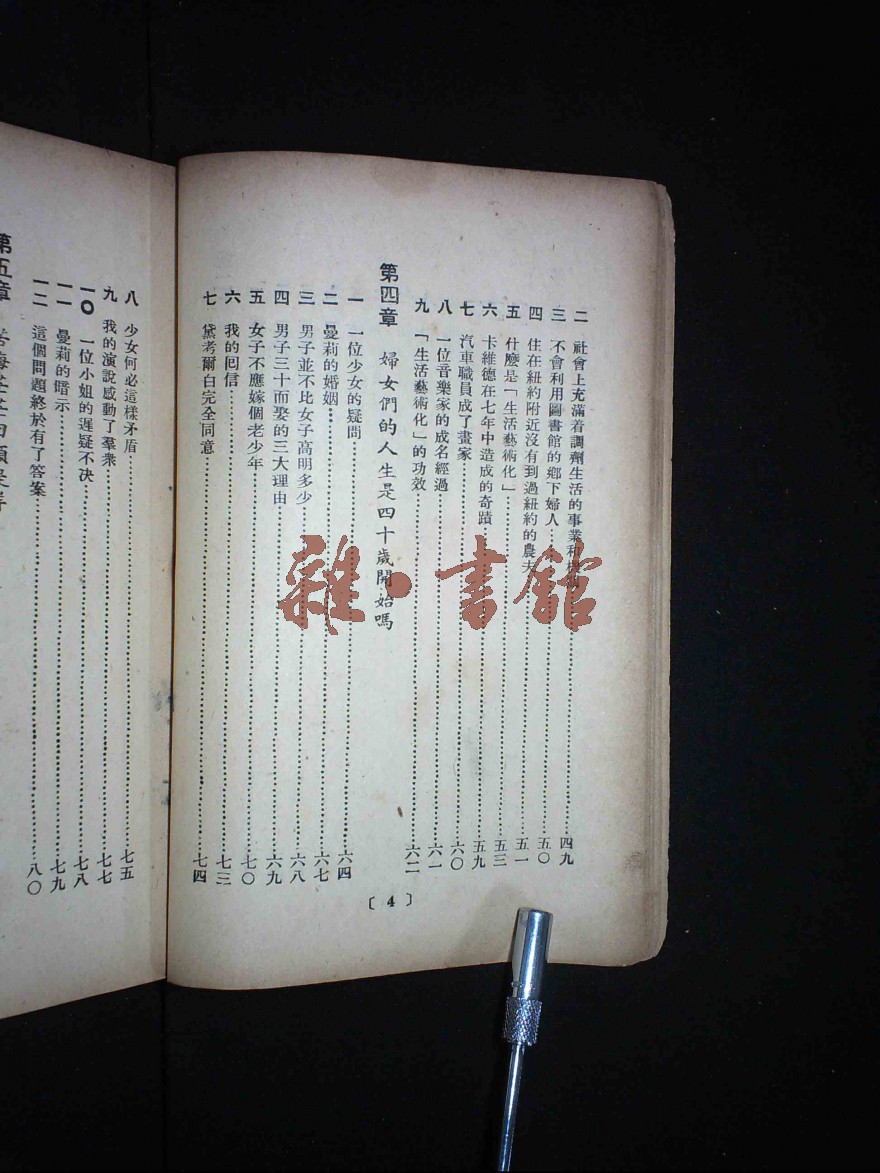 二 社會上充滿着調劑生活的事業和機……四九
三 不會利用圖書館的鄉下婦人……五〇
四 住在紐約附近沒有到過紐約的農夫……五一
五 什麼是「生活藝術化」……五三
六 卡維德在七年中造成的奇蹟……五九
七 汽車職員成了畫家……六〇
八 一位音樂家的成名經過……六一
九 「生活藝術化」的功效……六二
第四章 婦女們的人生是四十歲開始嗎
一 一位少女的疑問……六四
二 曼莉的婚姻……六七
三 男子並不比女子高明多少……六八
四 男子三十而娶的三大理由……六九
五 女子不應嫁個老少年……七〇
六 我的回信……七三
七 黛考爾白完全同意……七四
〔4〕
八 少女何必這樣矛盾……七五
九 我的演說感動了羣衆……七七
一〇 一位小姐的遲疑不决……七八
一一 曼莉的暗示……七九
一二 這個問題終於有了答案……八〇
第五章
雜·書館